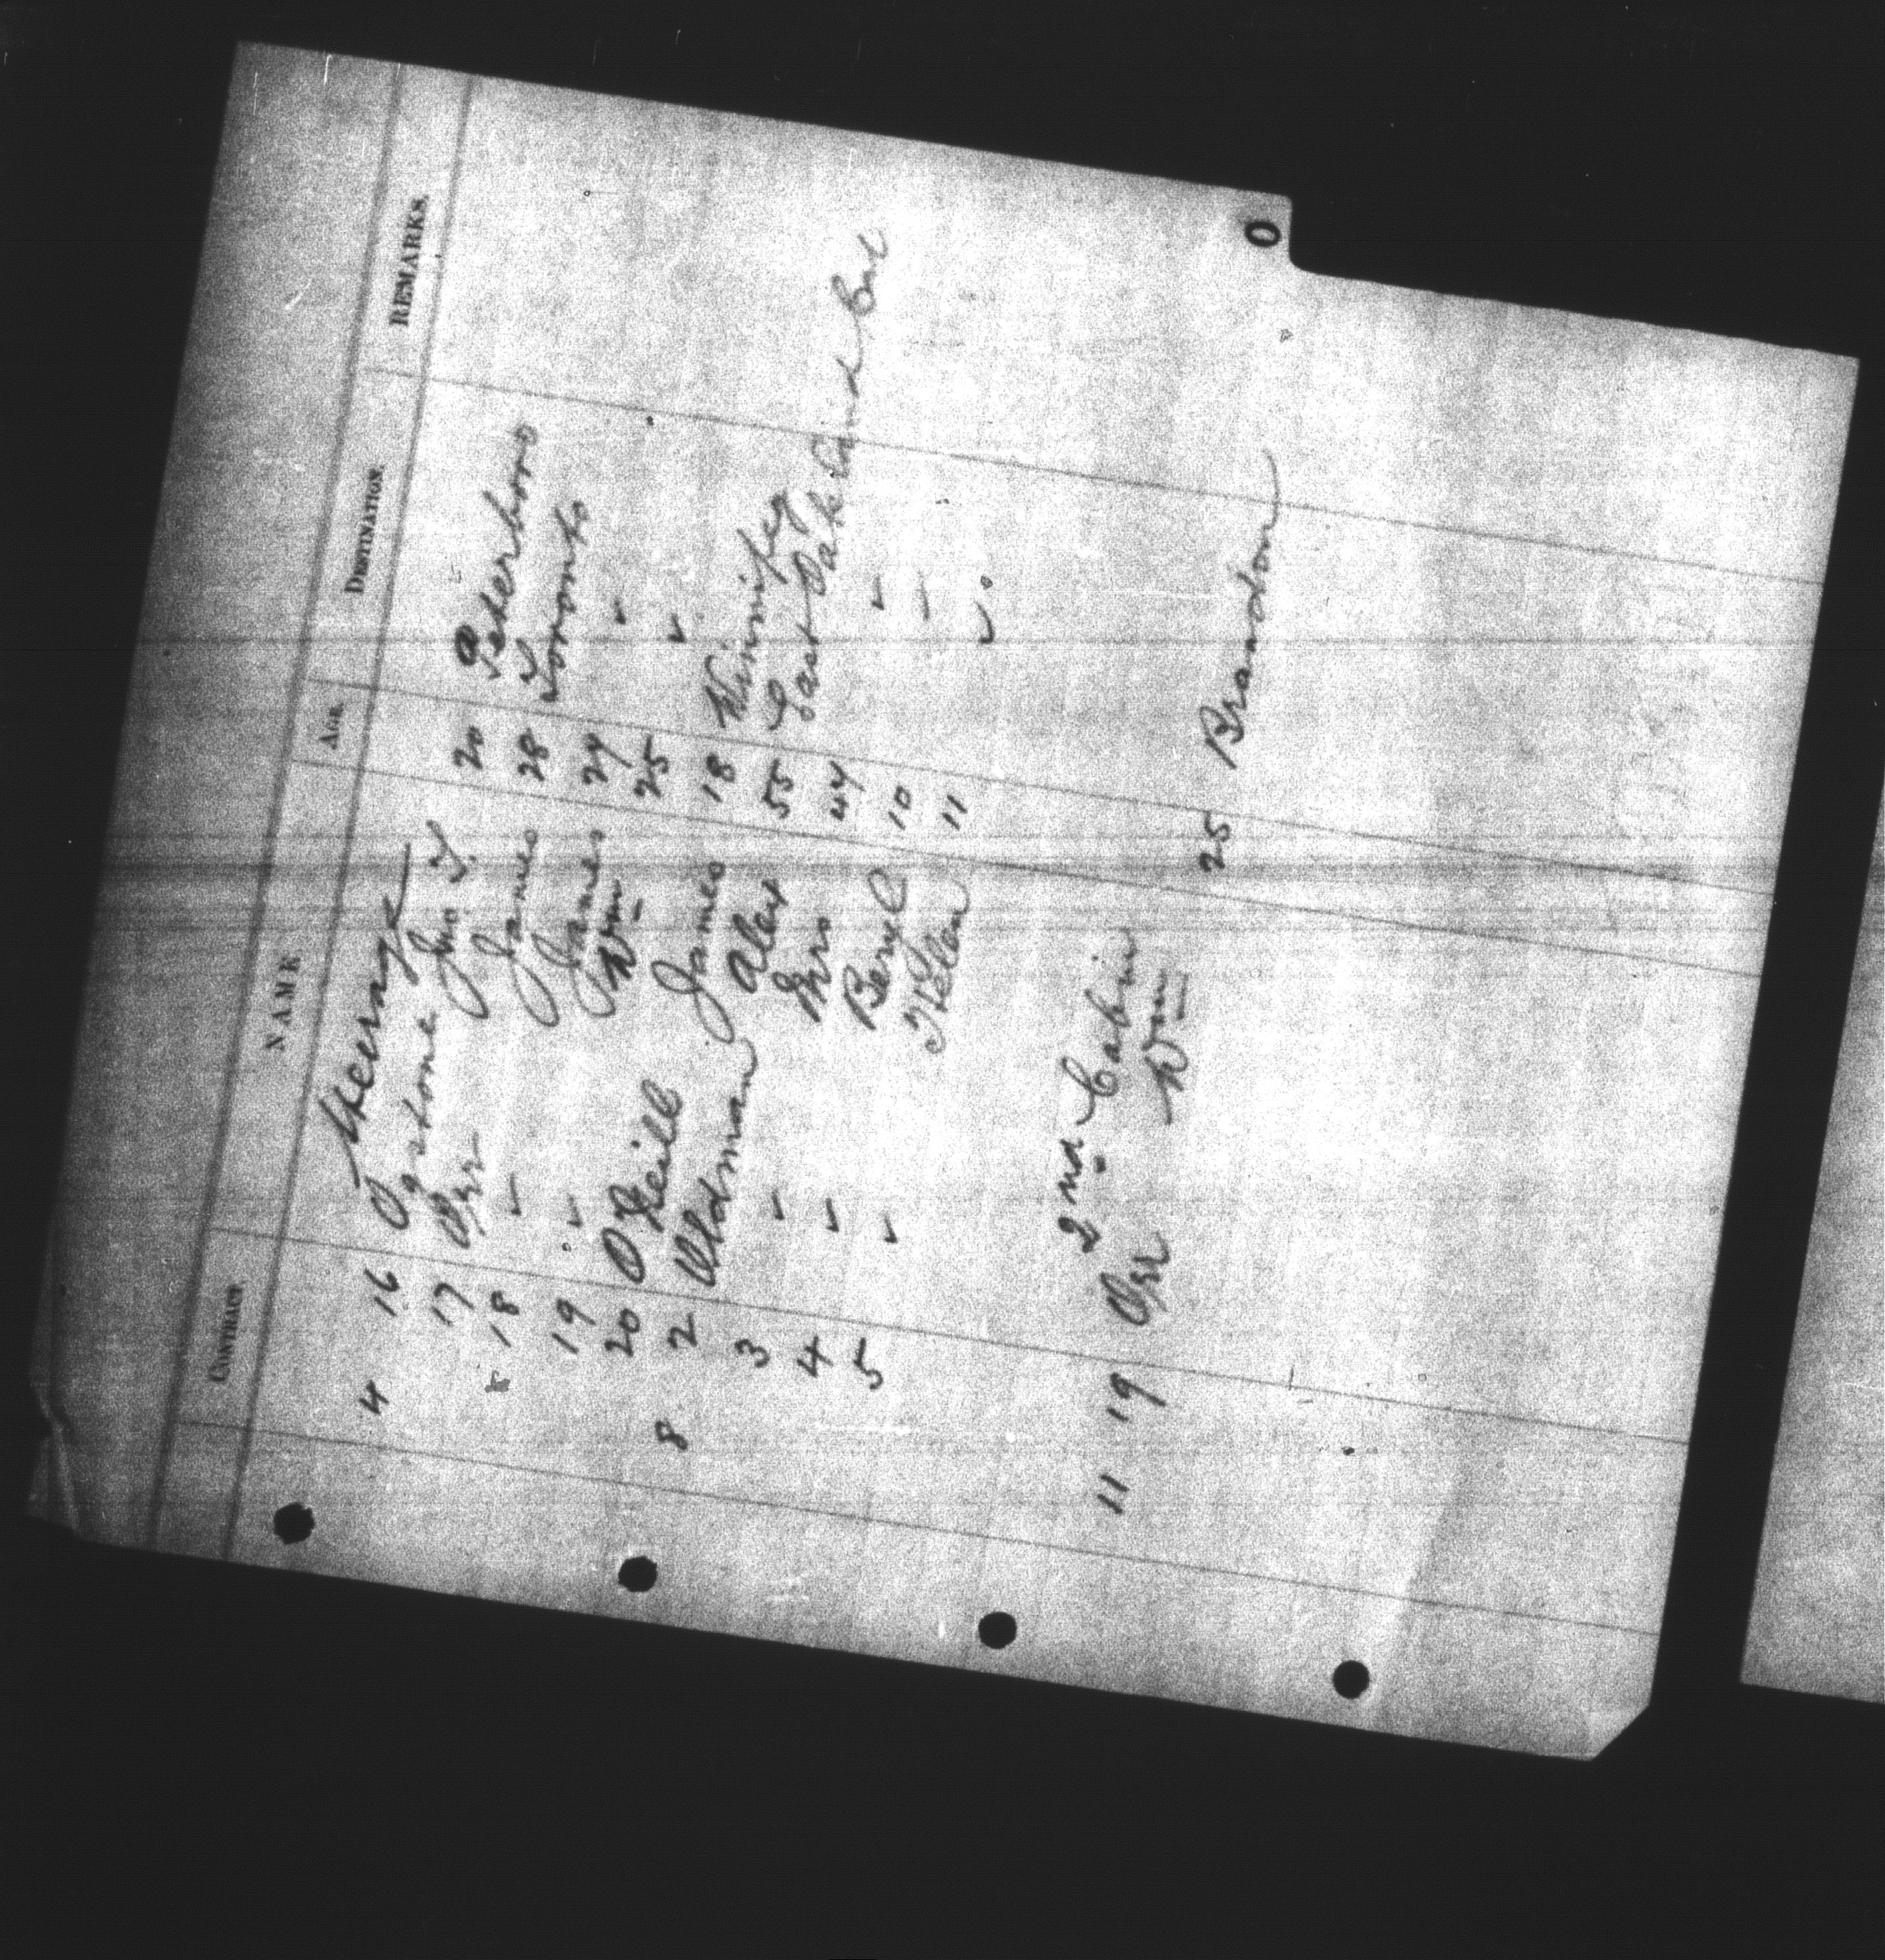 CONTRACT NAME AGE DESTINATION REMARKS.
Steerage
4 16 Ogstone Jno. T. 20 Peterboro
17 Orr James 28 Toronto
18 ✓ James 24 ✓
19 ✓ Wm 25 ✓
20 O'Neill James 18 Winnipeg
8 2 Oldman Alex 55 East Oakland Cal
3 ✓ Mrs 44 ✓
4 ✓ Beryl 10 –
5 ✓ Helen 11 ✓
2nd Cabin
11 19 Orr Wm 25 Brandon
O